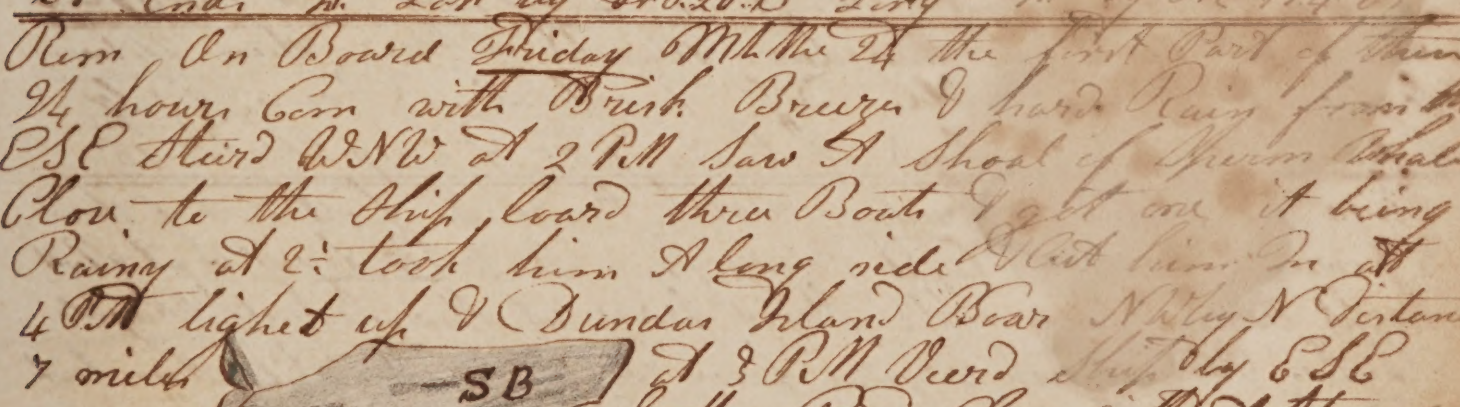 Rem On Board Friday Mh the 24 the first Part of these
24 hours Com with Brisk Breezes & hard Rain from
ESE Steird WNW at 2 PM Saw A Shoal of Sperm Whale
Close to the Ship loard three Boats & got one it being
Rainy at 2½ took him A long side & Cut him In at
4 PM light up & Dundas Island Boar NW by N Distan
7 miles SB at 5 PM Veerd Ship by ESE